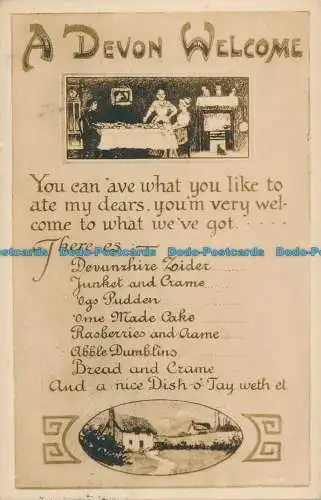 A DEVON WELCOME
You can 'ave what you like to
ate my dears, you'm very wel-
come to what we've got . . . . .
There es :—
Devunzhire Zider
Junket and Crame
'Ogs Pudden
'Ome Made Cake
Rasberries and Crame
Abble Dumblins
Bread and Crame
And a nice Dish o' Tay weth et
Postcards
bokia-Postcards
bokia-Postcards
bokia-Postcards